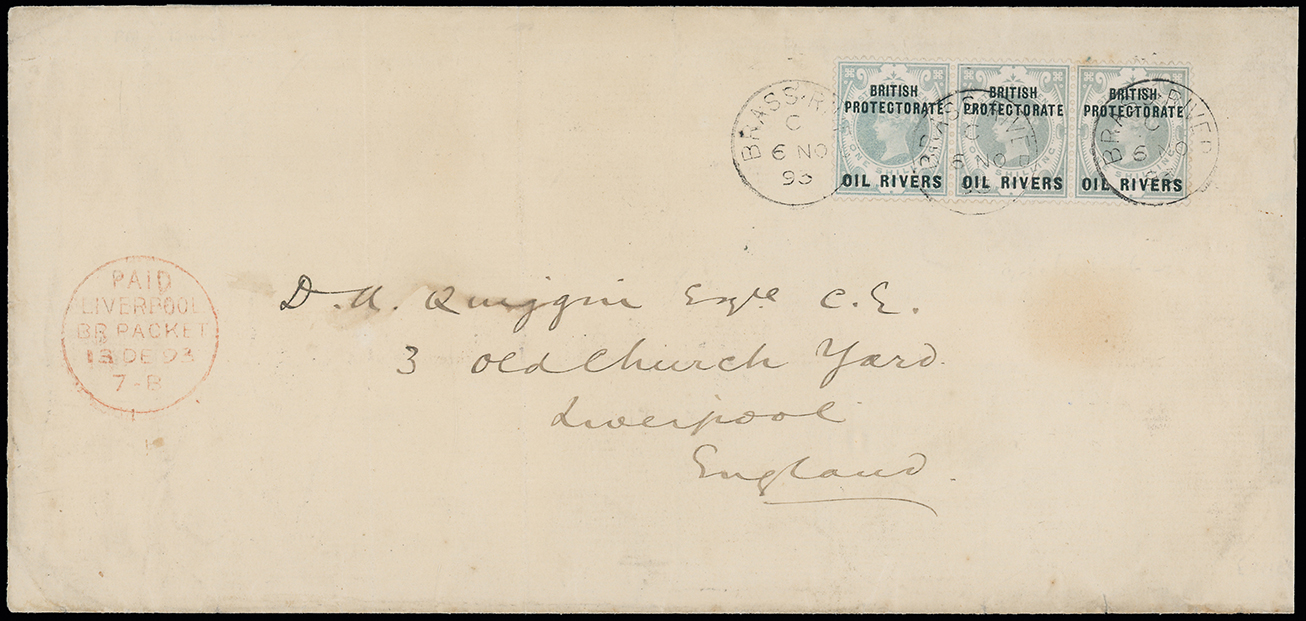 BRITISH PROTECTORATE
ONE SHILLING
OIL RIVERS
BRITISH PROTECTORATE
OIL RIVERS
BRITISH PROTECTORATE
OIL RIVERS
BRASS-R
C
6 NO
93
BRASS
C
6 NO
93
BRASS-RIVER
C
6 NO
PAID
LIVERPOOL
BR PACKET
13 DE 93
7-B
D. A. Quiggin Esqre C.E.
3 Old Church Yard
Liverpool
England